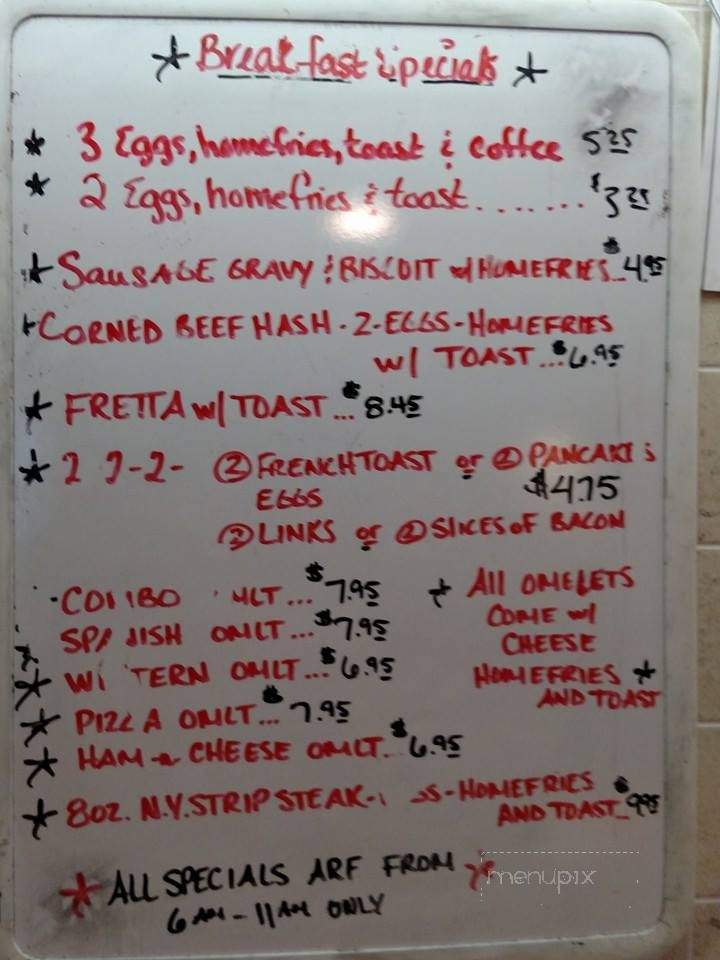 * Breakfast Specials *
* 3 Eggs, homefries, toast & coffee 5.25
* 2 Eggs, homefries & toast........ $3.25
* SAUSAGE GRAVY & BISCUIT w/ HOMEFRIES... $4.95
* CORNED BEEF HASH - 2-EGGS - HOMEFRIES
w/ TOAST... $6.95
* FRETTA w/ TOAST... $8.45
* 2-2-2- ② FRENCH TOAST or ② PANCAKES
EGGS $4.75
② LINKS or ② SLICES OF BACON
COMBO OMLT... $7.95
* All OMELETS
SPANISH OMLT... $7.95
COME w/
CHEESE
* WESTERN OMLT... $6.95
HOMEFRIES *
AND TOAST
* PIZZA OMLT... $7.95
* HAM & CHEESE OMLT.. $6.95
* 8OZ. N.Y. STRIP STEAK - HOMEFRIES
AND TOAST... $9.95
* ALL SPECIALS ARE FROM *
6 AM - 11 AM ONLY
menupix